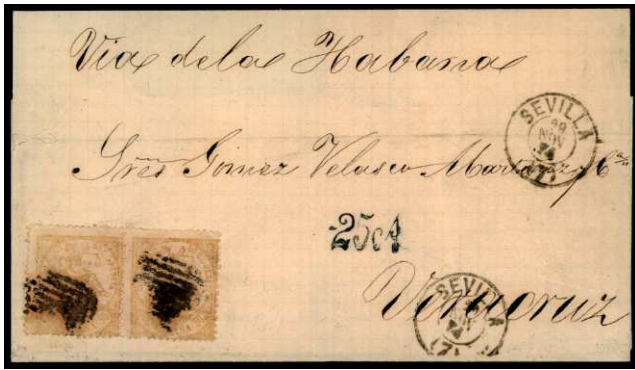 Via de la Habana
SEVILLA
29
NOV
74
(7)
Sres Gomez Velasco Martinez y Ca
25 ct
Veracruz
SEVILLA
74
(7)